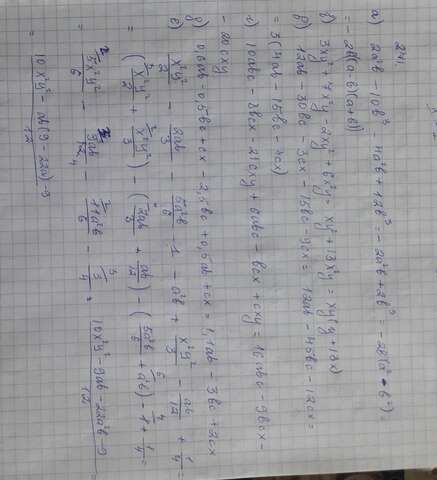 241.
а) 2a²b - 10b³ - 4a²b + 12b³ = -2a²b + 2b³ =
= -2b(a² - b²)
= -2b((a-b)(a+b))
б) 3xy² + 7x²y - 2xy² + 6x²y = xy² + 13x²y = xy(y + 13x)
в) 12ab - 30bc - 3cx - 15bc - 9cx = 12ab - 45bc - 12cx =
= 3(4ab - 15bc - 4cx)
г) 10abc - 8bcx - 21cxy + 6abc - bcx + cxy = 16abc - 9bcx -
- 20cxy
д) 0,6ab - 0,5bc + cx - 2,5bc + 0,5ab + cx = 1,1ab - 3bc + 2cx
е) x²y²/2 - 2ab/3 - 5a²b/6 - 1 - a²b + x²y²/3 - ab/12 + 1/4 =
= (x²y²/2 + x²y²/3) - (2ab/3 + ab/12) - (5a²b/6 + a²b) - 1 + 1/4 =
= 5x²y²/6 - 9ab/12 - 11a²b/6 - 3/4 = 10x²y² - 9ab - 22a²b - 9/12
= 10x²y² - ab(9 - 22a) - 9/12